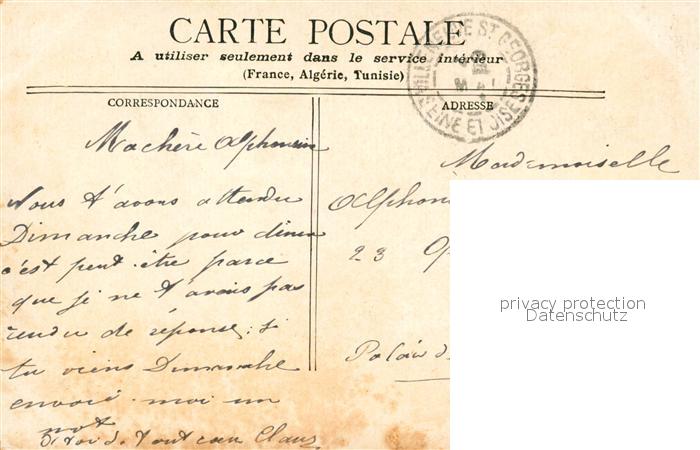 CARTE POSTALE
A utiliser seulement dans le service intérieur
(France, Algérie, Tunisie)
VILLENEUVE ST GEORGES
SEINE ET OISE
CORRESPONDANCE
Machère Alphonsin
Nous t'avons attendu
Dimanche pour diner
c'est peut être parce
que je ne t'avais pas
rendu de réponse; si
tu viens Dimanche
envoie moi un
mot
tout
ADRESSE
Mademoiselle
Alphon
23
Palais d
privacy protection
Datenschutz